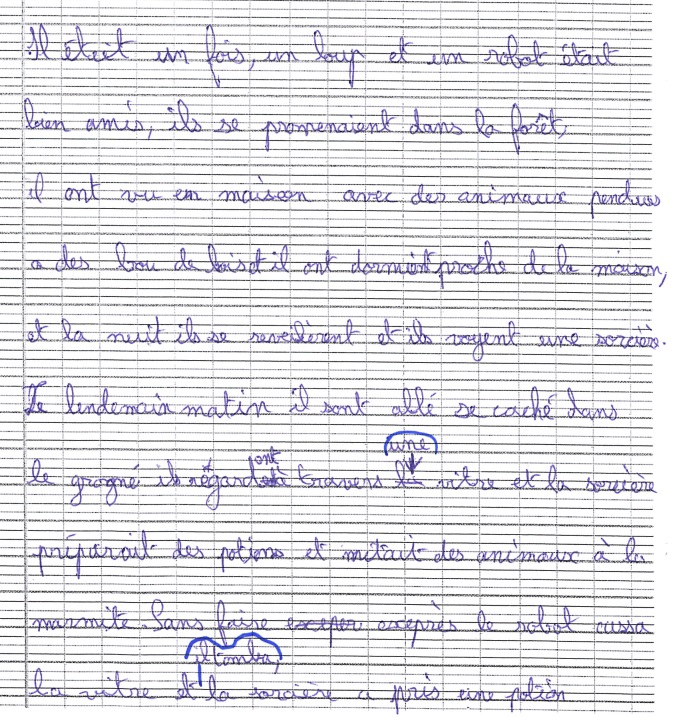 Il était un fois, un loup et un robot était
bien amis, ils se promenaient dans la forêt,
il ont vu en maison avec des animaux pendues
a des bou de bois et il ont dormient proche de la maison,
et la nuit ils se reveilèrent et ils voyent une sorcière.
Le lendemain matin il sont allé se caché dans
une
le grogné ils régardont à travers vitre et la sorcière
préparait des potions et mitait des animaux à la
marmite. Sans faire exeprès le robot cassa
il tomba,
la vitre et la sorcière a pris une potion